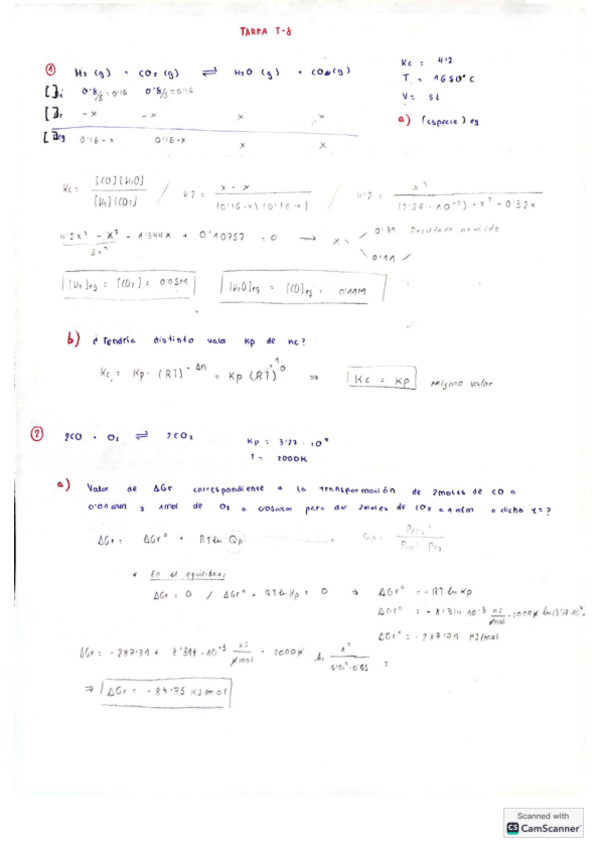 TAREA T-8
① H₂ (g) + CO₂ (g) ⇌ H₂O (g) + CO (g)
Kc = 4'2
T = 1650°C
V = 5L
[ ]i 0'8/5 = 0'16 0'8/5 = 0'16
[ ]r -x -x x x
[ ]eq 0'16-x 0'16-x x x
a) [especie] eq
Kc = [CO][H₂O] / [H₂][CO₂] / 4'2 = x · x / (0'16-x)(0'16-x) / 4'2 = x² / (2'56 · 10⁻²) + x² - 0'32x
4'2x² - x² - 1'344x + 0'10752 = 0 → x =
3x²
0'11 ✓
[H₂]eq = [CO₂] = 0'05M
[H₂O]eq = [CO]eq = 0'11M
b) ¿Tendría distinto valor Kp de Kc?
Kc = Kp · (RT)^-Δn = Kp (RT)⁰ ⇒ Kc = Kp mismo valor
② 2CO + O₂ ⇌ 2CO₂
T = 2000K
a) Valor de ΔGr correspondiente a la transformación de 2moles de CO a
0'01atm y 1mol de O₂ a 0'05atm para dar 2moles de CO₂ a 1 atm a dicha T = ?
ΔGr = ΔGr° + RT ln Qp
Qp = Pco₂² / Pco² · Po₂
* En el equilibrio:
ΔGr = 0 / ΔGr° + RT ln Kp = 0 ⇒ ΔGr° = -RT ln Kp
ΔGr° = - 8'314 · 10⁻³ KJ/Kmol · 2000K
KJ/mol
1² / 0'01² · 0'05 =
⇒ ΔGr = - 84'75 KJ/mol
Scanned with
CS CamScanner